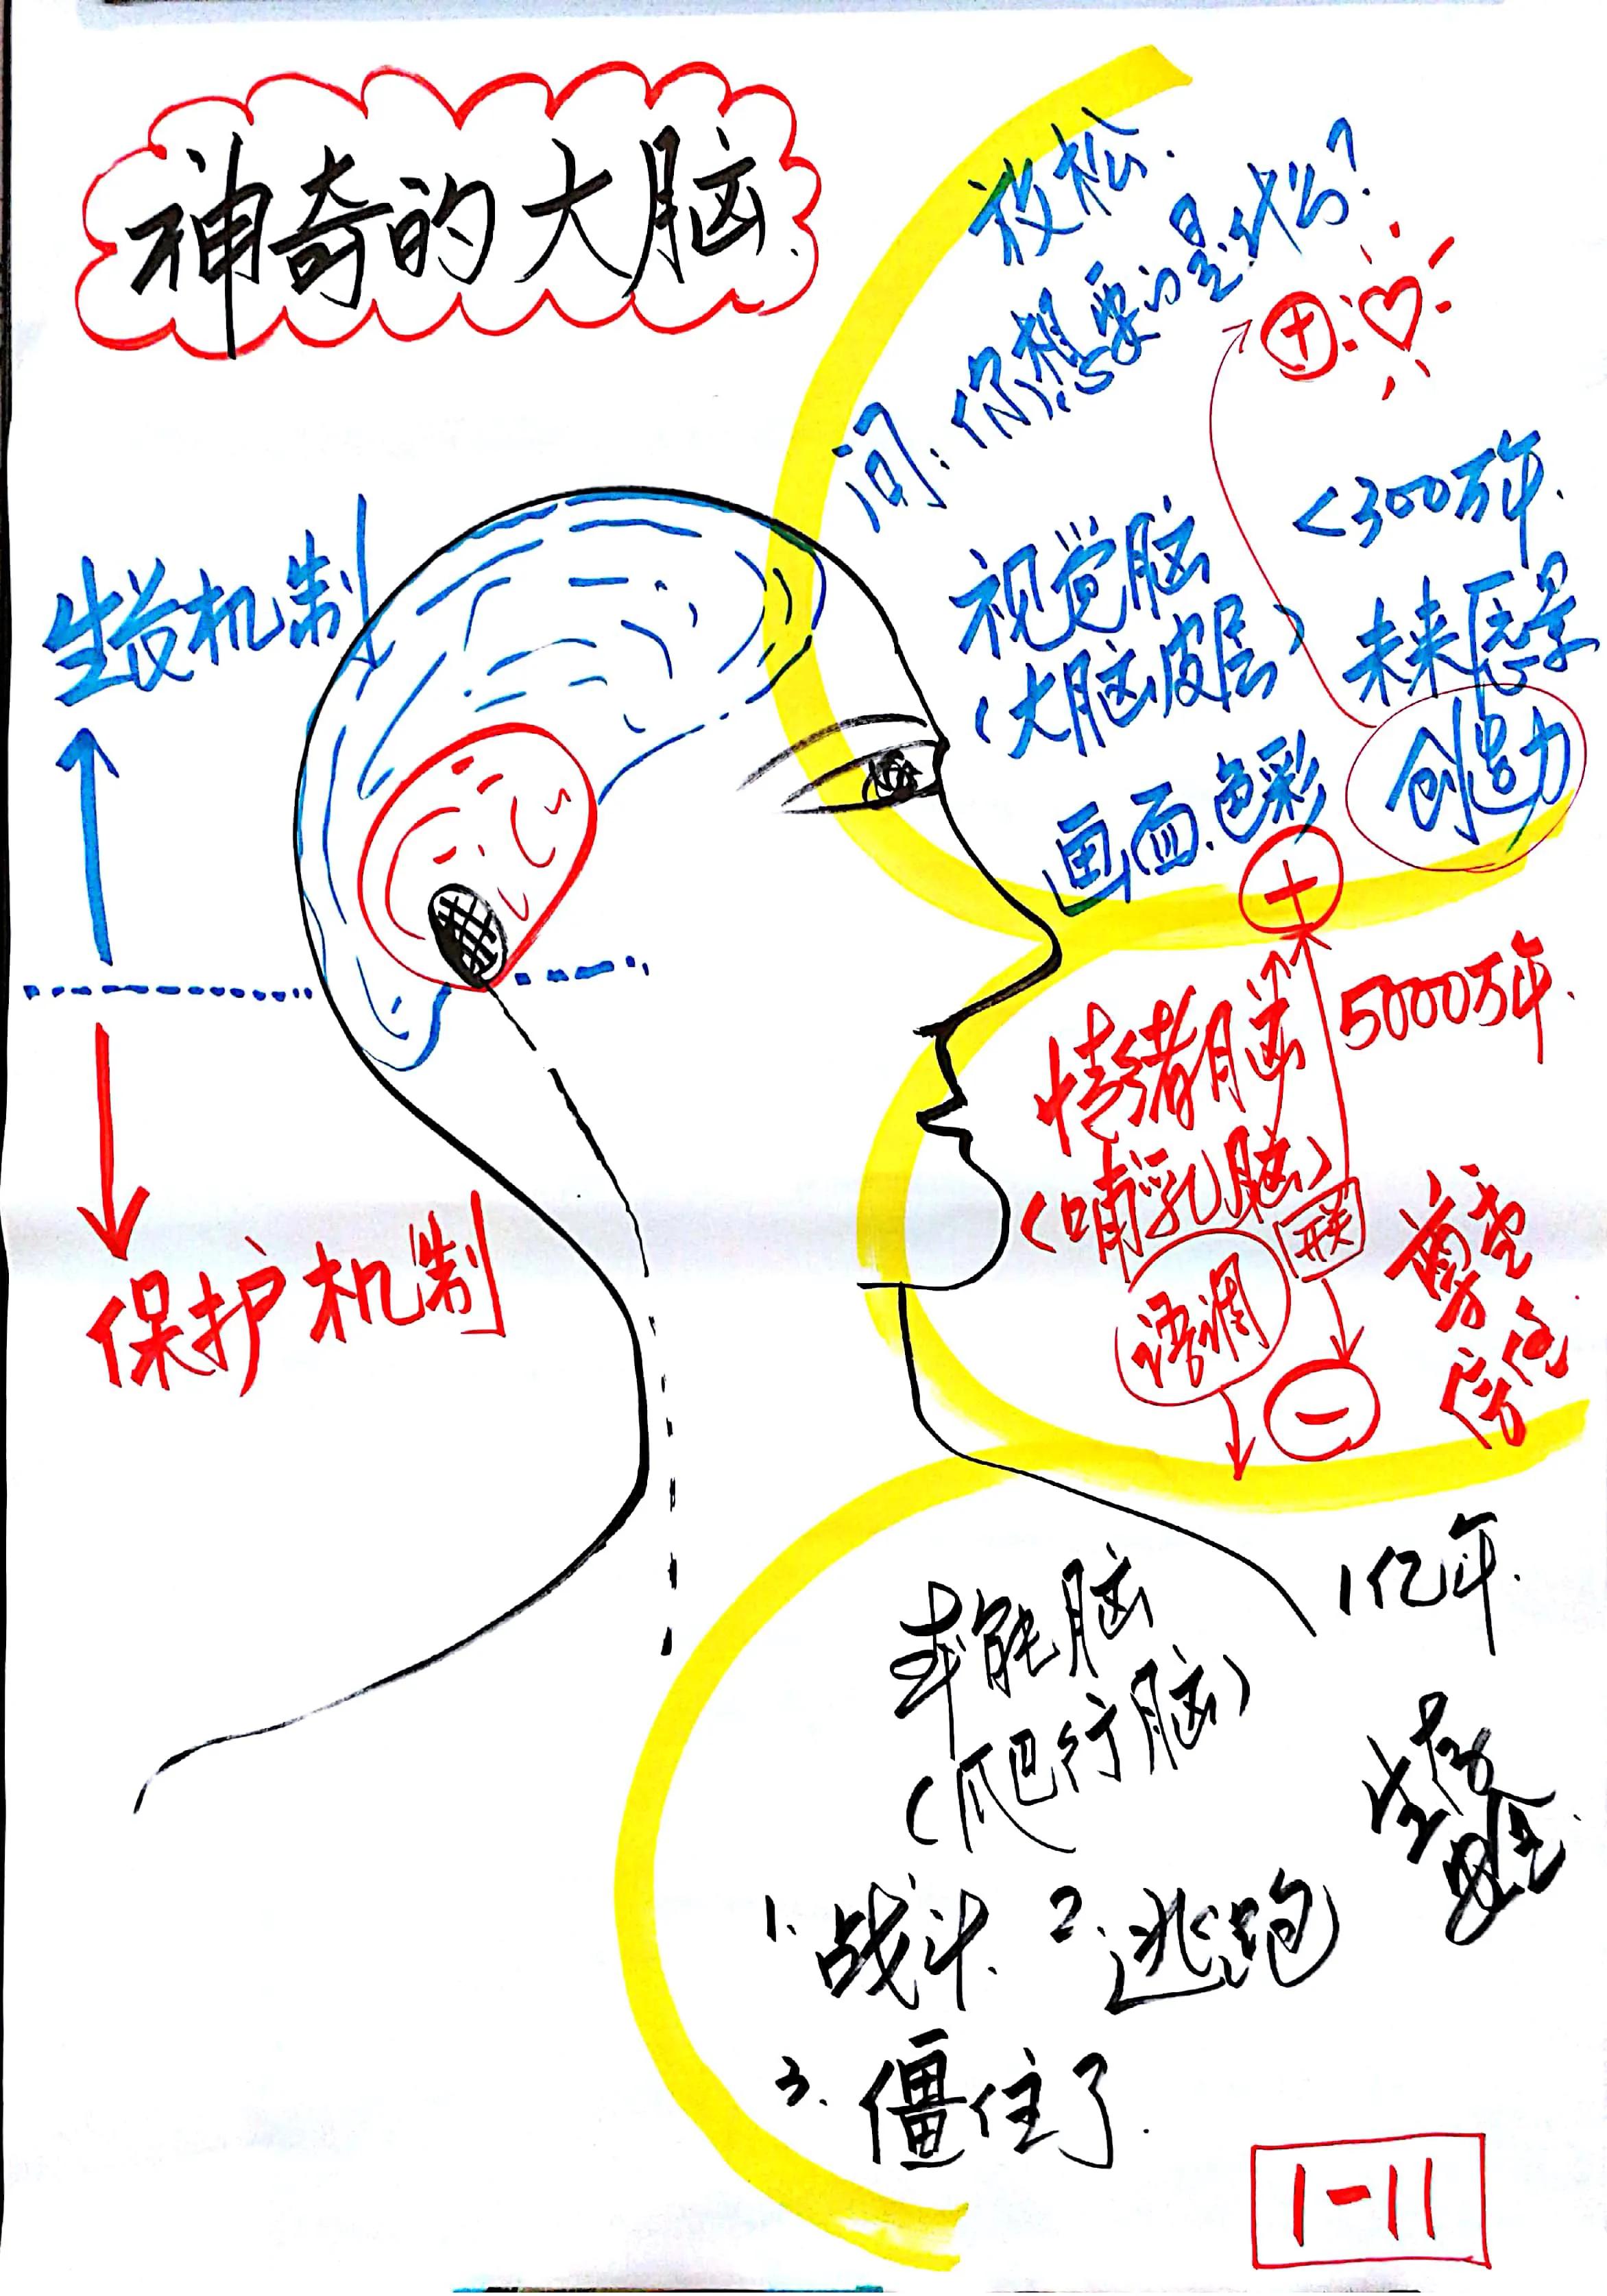 神奇的大脑
放松
问:你想要的是什么?
+
<300万年
视觉脑
(大脑皮层)
未来愿景
创造力
画面.色彩
生发机制
+
5000万年
情绪脑
(哺乳脑)
语调
-
保护机制
1亿年
本能脑
(爬行脑)
生存
安全
1.战斗.
2.逃跑
3.僵住了.
1-11